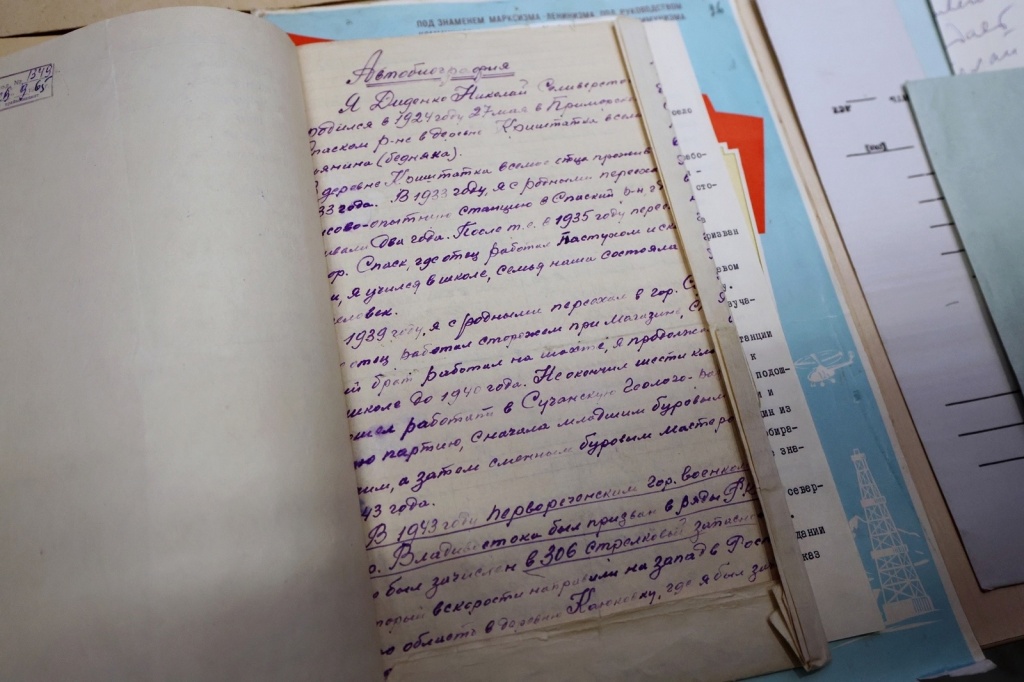 ПОД ЗНАМЕНЕМ МАРКСИЗМА-ЛЕНИНИЗМА ПОД РУКОВОДСТВОМ
36
Автобиография
Я Диденко Николай Селиверсто
родился в 1924 году 27 мая в Приморско
Спаском р-не в деревне Криштатка в семье
янина (бедняка).
деревне Крыштатка в семье отца прожив
33 года. В 1933 году, я с родными переехал
сово-опытную станцию в Спаский р-н г
вали два года. После т.е. в 1935 году перее
ор. Спаск, где отец работал пастухом и ск
и, я учился в школе, семья наша состояла
еловек.
1939 году, я с родными переехал в гор. С
отец работал сторожем при магазине, С
ий брат работал на шахте, я продолжал
школе до 1940 года. Не окончив шести кла
шел работать в Сучанскую Геолого-ра
ю партию, сначала младшим буровым
ким, а затем сменным буровым мастеро
43 года.
В 1943 году Первореченским гор. военком
о. Владивостока был призван в ряды РК
е был зачислен в 306 стрелковый запасно
торый вскорости направили на запад в Рос
ю область в деревню где я был за
село
ебо-
сто-
ризван
вом
зуча-
танции
к
подош-
и
ин из
бира-
е зна-
север-
дании
каз